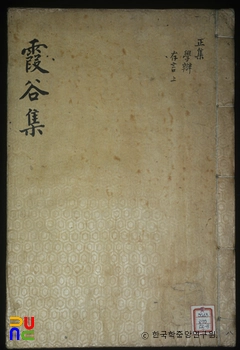 霞谷集
正集
學辯
存言上
ⓒ 한국학중앙연구원